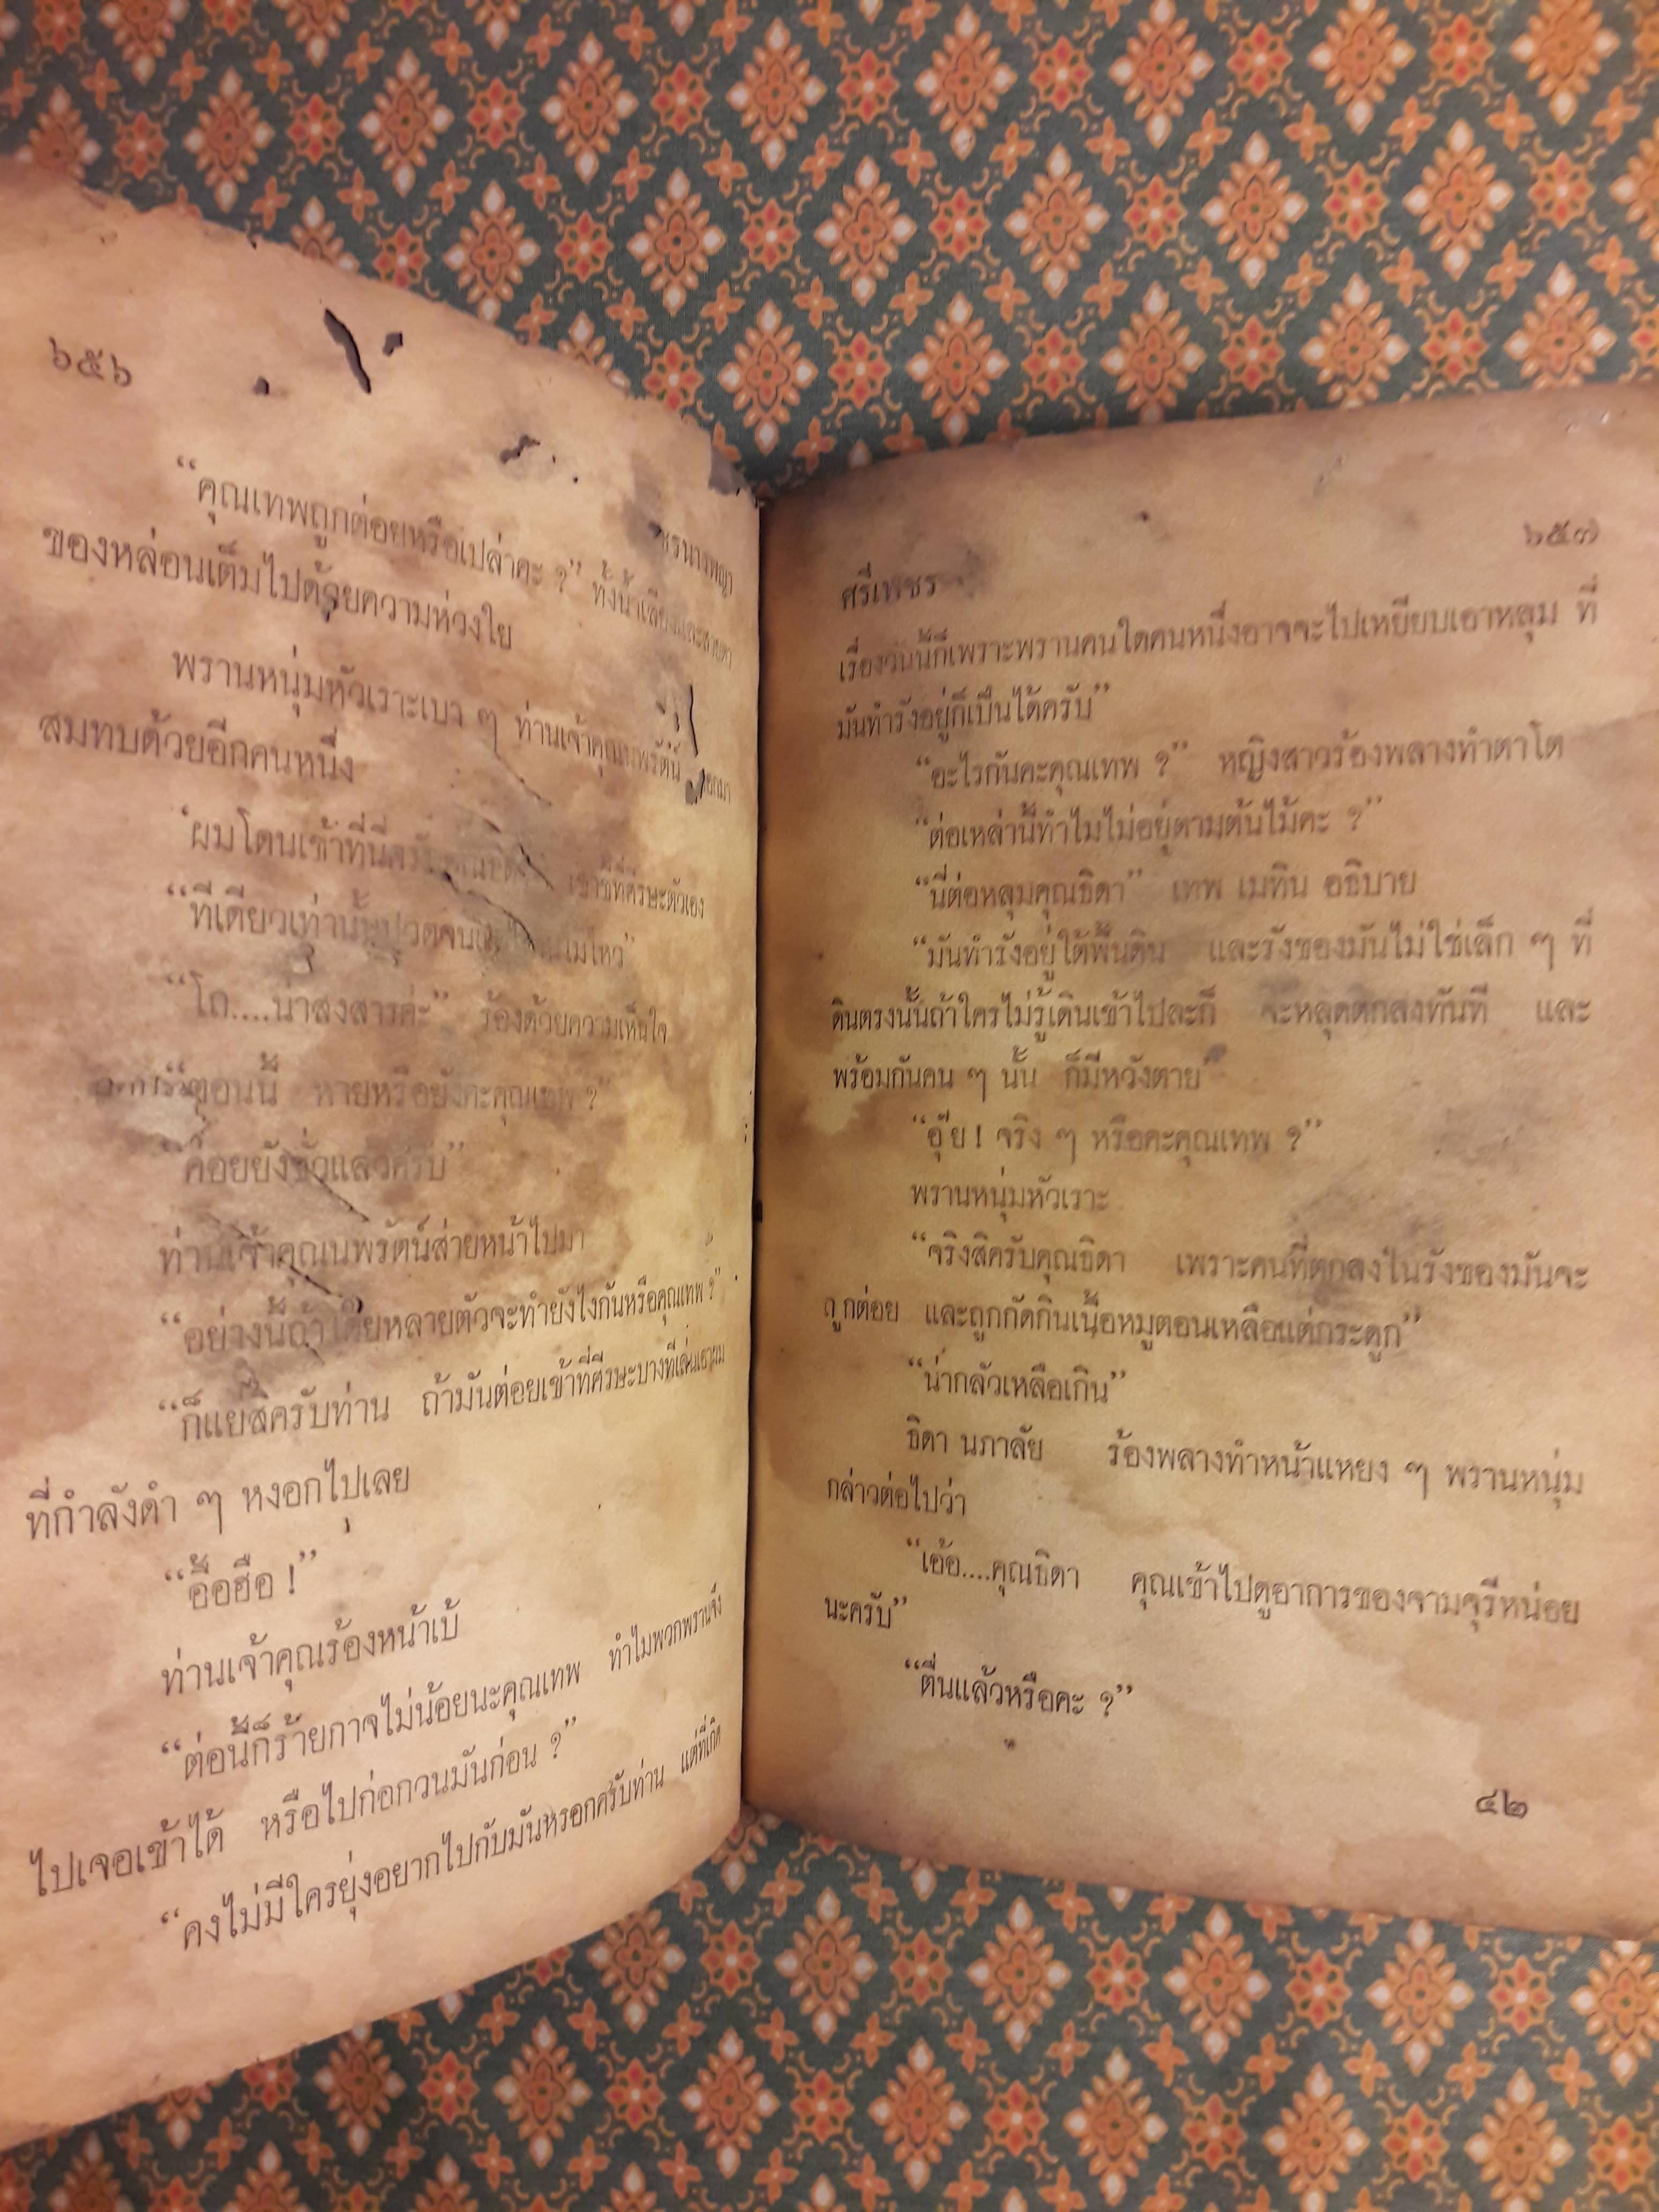 ๖๕๖
“คุณเทพถูกต่อยหรือเปล่าคะ ?” ทั้งน้ำเสียงและสายตา
ของหล่อนเต็มไปด้วยความห่วงใย
พรานหนุ่มหัวเราะเบา ๆ ท่านเจ้าคุณนพรัตน์
สมทบด้วยอีกคนหนึ่ง
“ผมโดนเข้าที่นี่ครับ เขาชี้ที่ศีรษะตัวเอง
“ทีเดียวเท่านั้นปวดจน ไม่ไหว”
“โถ....น่าสงสารค่ะ” ร้องด้วยความเห็นใจ
“ตอนนี้ หายหรือยังคะคุณเทพ ?”
“ค่อยยังชั่วแล้วครับ”
ท่านเจ้าคุณนพรัตน์ส่ายหน้าไปมา
“อย่างนี้ถ้า หลายตัวจะทำยังไงกันหรือคุณเทพ ?”
“ก็แย่สิครับท่าน ถ้ามันต่อยเข้าที่ศีรษะบางทีเล่นเอาผม
ที่กำลังดำ ๆ หงอกไปเลย
“อื้อฮือ !”
ท่านเจ้าคุณร้องหน้าเบ้
“ต่อนี้ก็ร้ายกาจไม่น้อยนะคุณเทพ ทำไมพวกพรานจึง
ไปเจอเข้าได้ หรือไปก่อกวนมันก่อน ?”
“คงไม่มีใครยุ่งอยากไปกับมันหรอกครับท่าน แต่ที่เกิด
๖๕๗
ศรีเพชร
เรื่องวันนี้ก็เพราะพรานคนใดคนหนึ่งอาจจะไปเหยียบเอาหลุม ที่
มันทำรังอยู่ก็เป็นได้ครับ”
“อะไรกันคะคุณเทพ ?” หญิงสาวร้องพลางทำตาโต
“ต่อเหล่านี้ทำไมไม่อยู่ตามต้นไม้คะ ?”
“นี่ต่อหลุมคุณธิดา” เทพ เมทิน อธิบาย
“มันทำรังอยู่ใต้พื้นดิน และรังของมันไม่ใช่เล็ก ๆ ที่
ดินตรงนั้นถ้าใครไม่รู้เดินเข้าไปละก็ จะหลุดตกลงทันที และ
พร้อมกันคน ๆ นั้น ก็มีหวังตาย”
“อุ๊ย ! จริง ๆ หรือคะคุณเทพ ?”
พรานหนุ่มหัวเราะ
“จริงสิครับคุณธิดา เพราะคนที่ตกลงในรังของมันจะ
ถูกต่อย และถูกกัดกินเนื้อหมูตอนเหลือแต่กระดูก”
“น่ากลัวเหลือเกิน”
ธิดา นภาลัย ร้องพลางทำหน้าแหยง ๆ พรานหนุ่ม
กล่าวต่อไปว่า
“เอ้อ....คุณธิดา คุณเข้าไปดูอาการของจามจุรีหน่อย
นะครับ”
“ตื่นแล้วหรือคะ ?”
๔๒